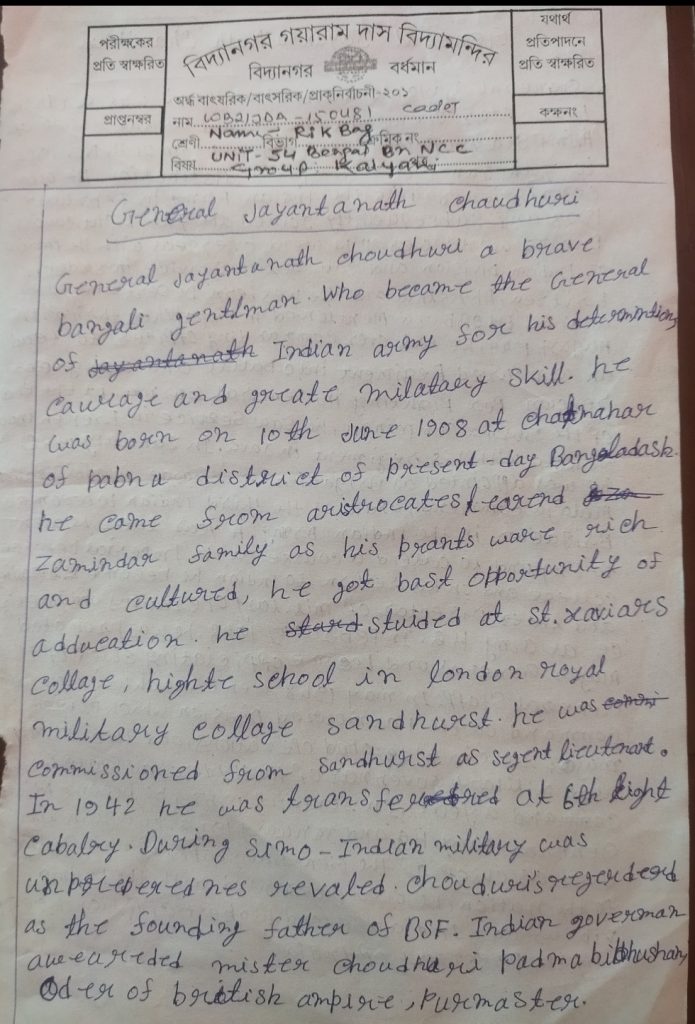 পরীক্ষকের
প্রতি স্বাক্ষরিত
প্রাপ্তনম্বর
বিদ্যানগর গয়ারাম দাস বিদ্যামন্দির
বিদ্যানগর বর্ধমান
অর্দ্ধ বাৎসরিক/বাৎসরিক/প্রাক্‌নির্বাচনী-২০১
নাম. WB21JDA-150481 cadet
শ্রেণী Name - Rik Bag বিভাগ ক্রমিক নং
UNIT - 54 Bengal Bn NCC
বিষয় Group Kalyani
যথার্থ
প্রতিপাদনে
প্রতি স্বাক্ষরিত
কক্ষনং
General Jayantanath Chaudhuri
General Jayantanath choudhuri a brave
bangali gentlman. Who became the General
of Jayantanath Indian army for his determintion,
Cawrage and greate milatary skill. he
was born on 10th June 1908 at chatmahar
of pabna district of present-day Bangoladash.
he came from aristrocates learend
Zamindar family as his prants ware rich
and cultured, he got bast opportunity of
adducation. he stard stuided at st. xaviars
collage, highte school in london royal
military collage sandhurst. he was commi
commissioned from sandhurst as segent lieutenant.
In 1942 he was transfered at 6th light
Cabalry. During simo-Indian military was
unpreperednes revaled. Chouduri's regerderd
as the founding father of BSF. Indian goverman
awearded mister choudhuri padma bibhushan,
Oder of british ampire, Purmaster.